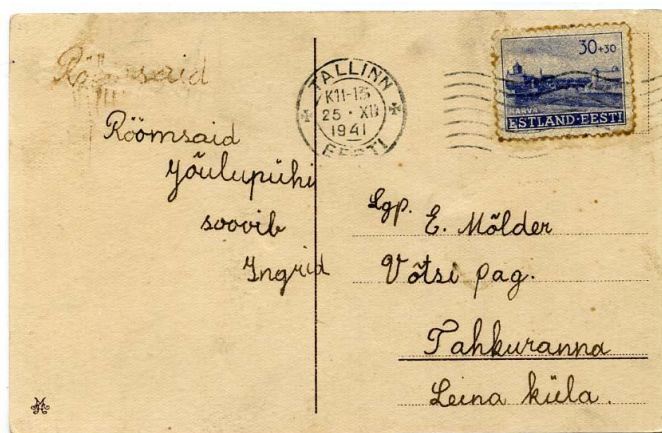 Rõõmsaid
Rõõmsaid
Jõulupühi
soovib
Ingrid
TALLINN
K11-13
25 · XII
1941
EESTI
30+30
NARVA
ESTLAND·EESTI
Lgp. E. Mõlder
Võtsi pag.
Tahkuranna
Leina küla.